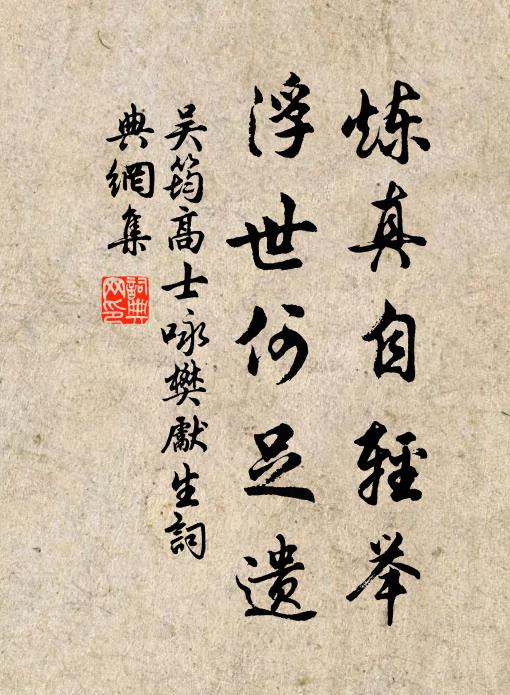 炼真自轻举
浮世何足遗
吴筠高士咏樊獻生詞
典網集
詞典
网印